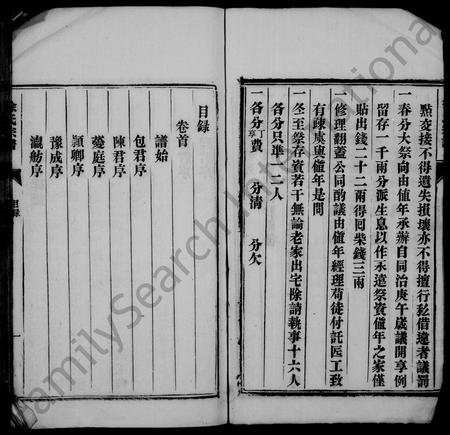 點交接不得遺失損壞亦不得擅行私借違者議罰
一春分大祭向由値年承辦自同治庚午歲議開享例
留存一千兩分派生息以作永遠祭資値年之家僅
貼出錢二十二兩得囘柴錢三兩
一修理翻蓋公同酌議由値年經理荷徒付託匠工致
有疎虞與値年是問
一冬至祭存資若干無論老家出宅除請執事十六人
各分只準一二人
一各分丁享費 分清 分欠
目錄
卷首
譜始
包君序
陳君序
薆庭序
頴卿序
豫成序
瀛舫序
氏宗譜
目錄
一
FamilySearch International